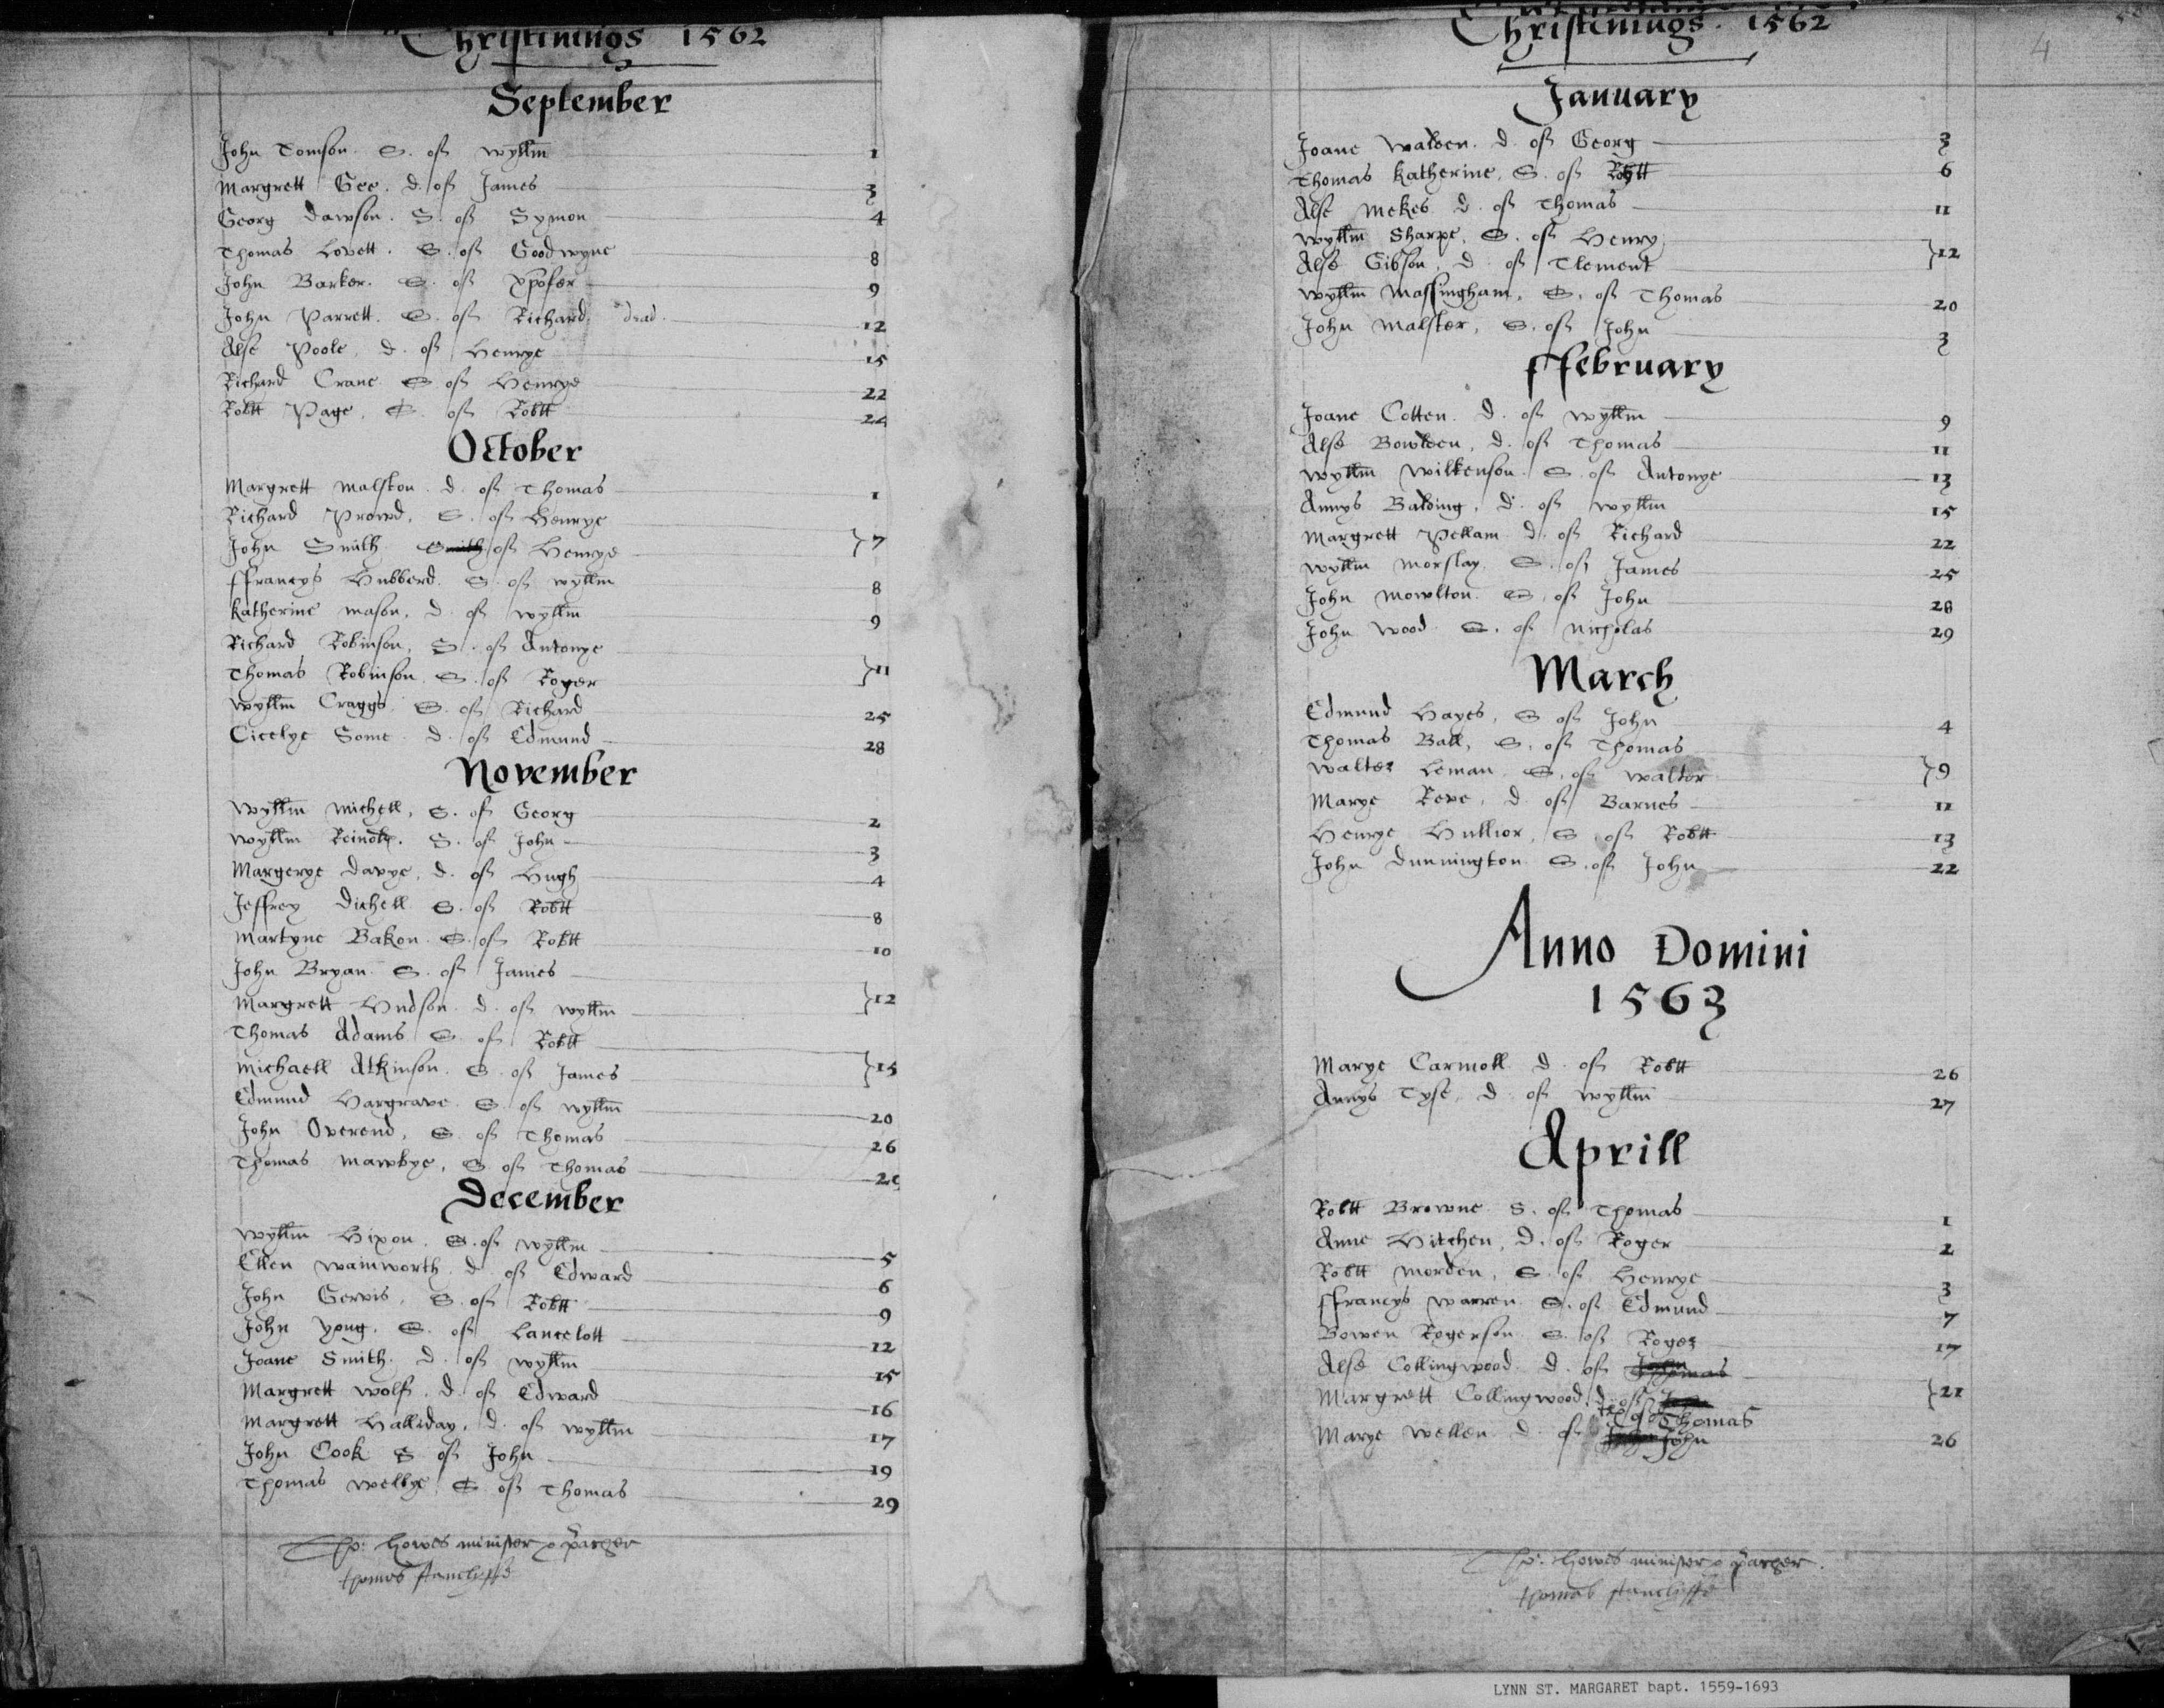 Christinings 1562
September
John Tomson. S. of wyllm 1
Margrett Gee. d. of James 3
Georg Dawson. S. of Symon 4
Thomas Lovett. S. of Goodwyne 8
John Barker. S. of xpofer 9
John Parrett. S. of Richard dead. 12
Alse Poole, d. of Henrye 15
Richard Crane S of Henrye 22
Robtt Page, S. of Robtt 24
October
Margrett Malston. d. of Thomas 1
Richard Prowd, S. of Henrye
John Smith Smith of Henrye }7
ffrancys Hubberd. S. of wyllm 8
Katherine Mason, d. of wyllm 9
Richard Robinson, S. of Antonye
Thomas Robinson, S. of Roger }11
wyllm Craggs. S. of Richard 25
Cicelye Some. d. of Edmund 28
November
wyllm Michell, S. of Georg 2
wyllm S. of John 3
Margerye Davye, d. of Hugh 4
Jeffrey Dichell S. of Robtt 8
Martyne Bakon. S. of Robtt 10
John Bryan. S. of James
Margrett Hudson. d. of wyllm }12
Thomas Adams S. of Robtt
Michaell Atkinson. S. of James }15
Edmund Hargrave. S. of wyllm 20
John Overend, S. of Thomas 26
Thomas Mawbye, S of Thomas
December
wyllm Hixon. S. of wyllm 5
Ellen wainworth. d. of Edward 6
John Gervis, S. of Robtt 9
John yong, S. of Lancelott 12
Joane Smith. d. of wyllm 15
Margrett wolf. d. of Edward 16
Margrett Halliday, d. of wyllm 17
John Cook S of John 19
Thomas wellye S of Thomas 29
Tho: Howes minister
Thomas Stancliffe
Christinings. 1562
4
January
Joane walden. d. of Georg 3
Thomas Katherine, S. of Robtt 6
Alse Mekes d. of Thomas 11
wyllm Sharpe, S. of Henry
Alse Gibson, d of Clement }12
wyllm Massingham, S. of Thomas 20
John Malster, S. of John 3
ffebruary
Joane Cotten. d. of wyllm 9
Alse Bowden, d. of Thomas 11
wyllm wilkenson. S. of Antonye 13
Annys Balding, d. of wyllm 15
Margrett Pellam d. of Richard 22
wyllm Morslay. S. of James 25
John Mowlton. S. of John 28
John wood S. of Nicholas 29
March
Edmund Hayes, S of John 4
Thomas Ball, S. of Thomas
walter Leman. S. of walter }9
Marye Reve, d. of Barnes 11
Henrye Hullior, S of Robtt 13
John Dunnington. S. of John 22
Anno Domini
1563
Marye Carmoll d. of Robtt 26
Annys Tyse, d of wyllm 27
Aprill
Robtt Browne S. of Thomas 1
Anne Hitchen, D. of Roger 2
Robtt Morden, S. of Henrye 3
ffrancys warren. S. of Edmund 7
Bowen Rogerson. S. of Roger 17
Alse Collingwood. d. of Thomas
Margrett Collingwood. d. of John }21
Thomas
Marye wellen d. of John 26
Tho: Howes minister
Thomas Stancliffe
LYNN ST. MARGARET bapt. 1559-1693